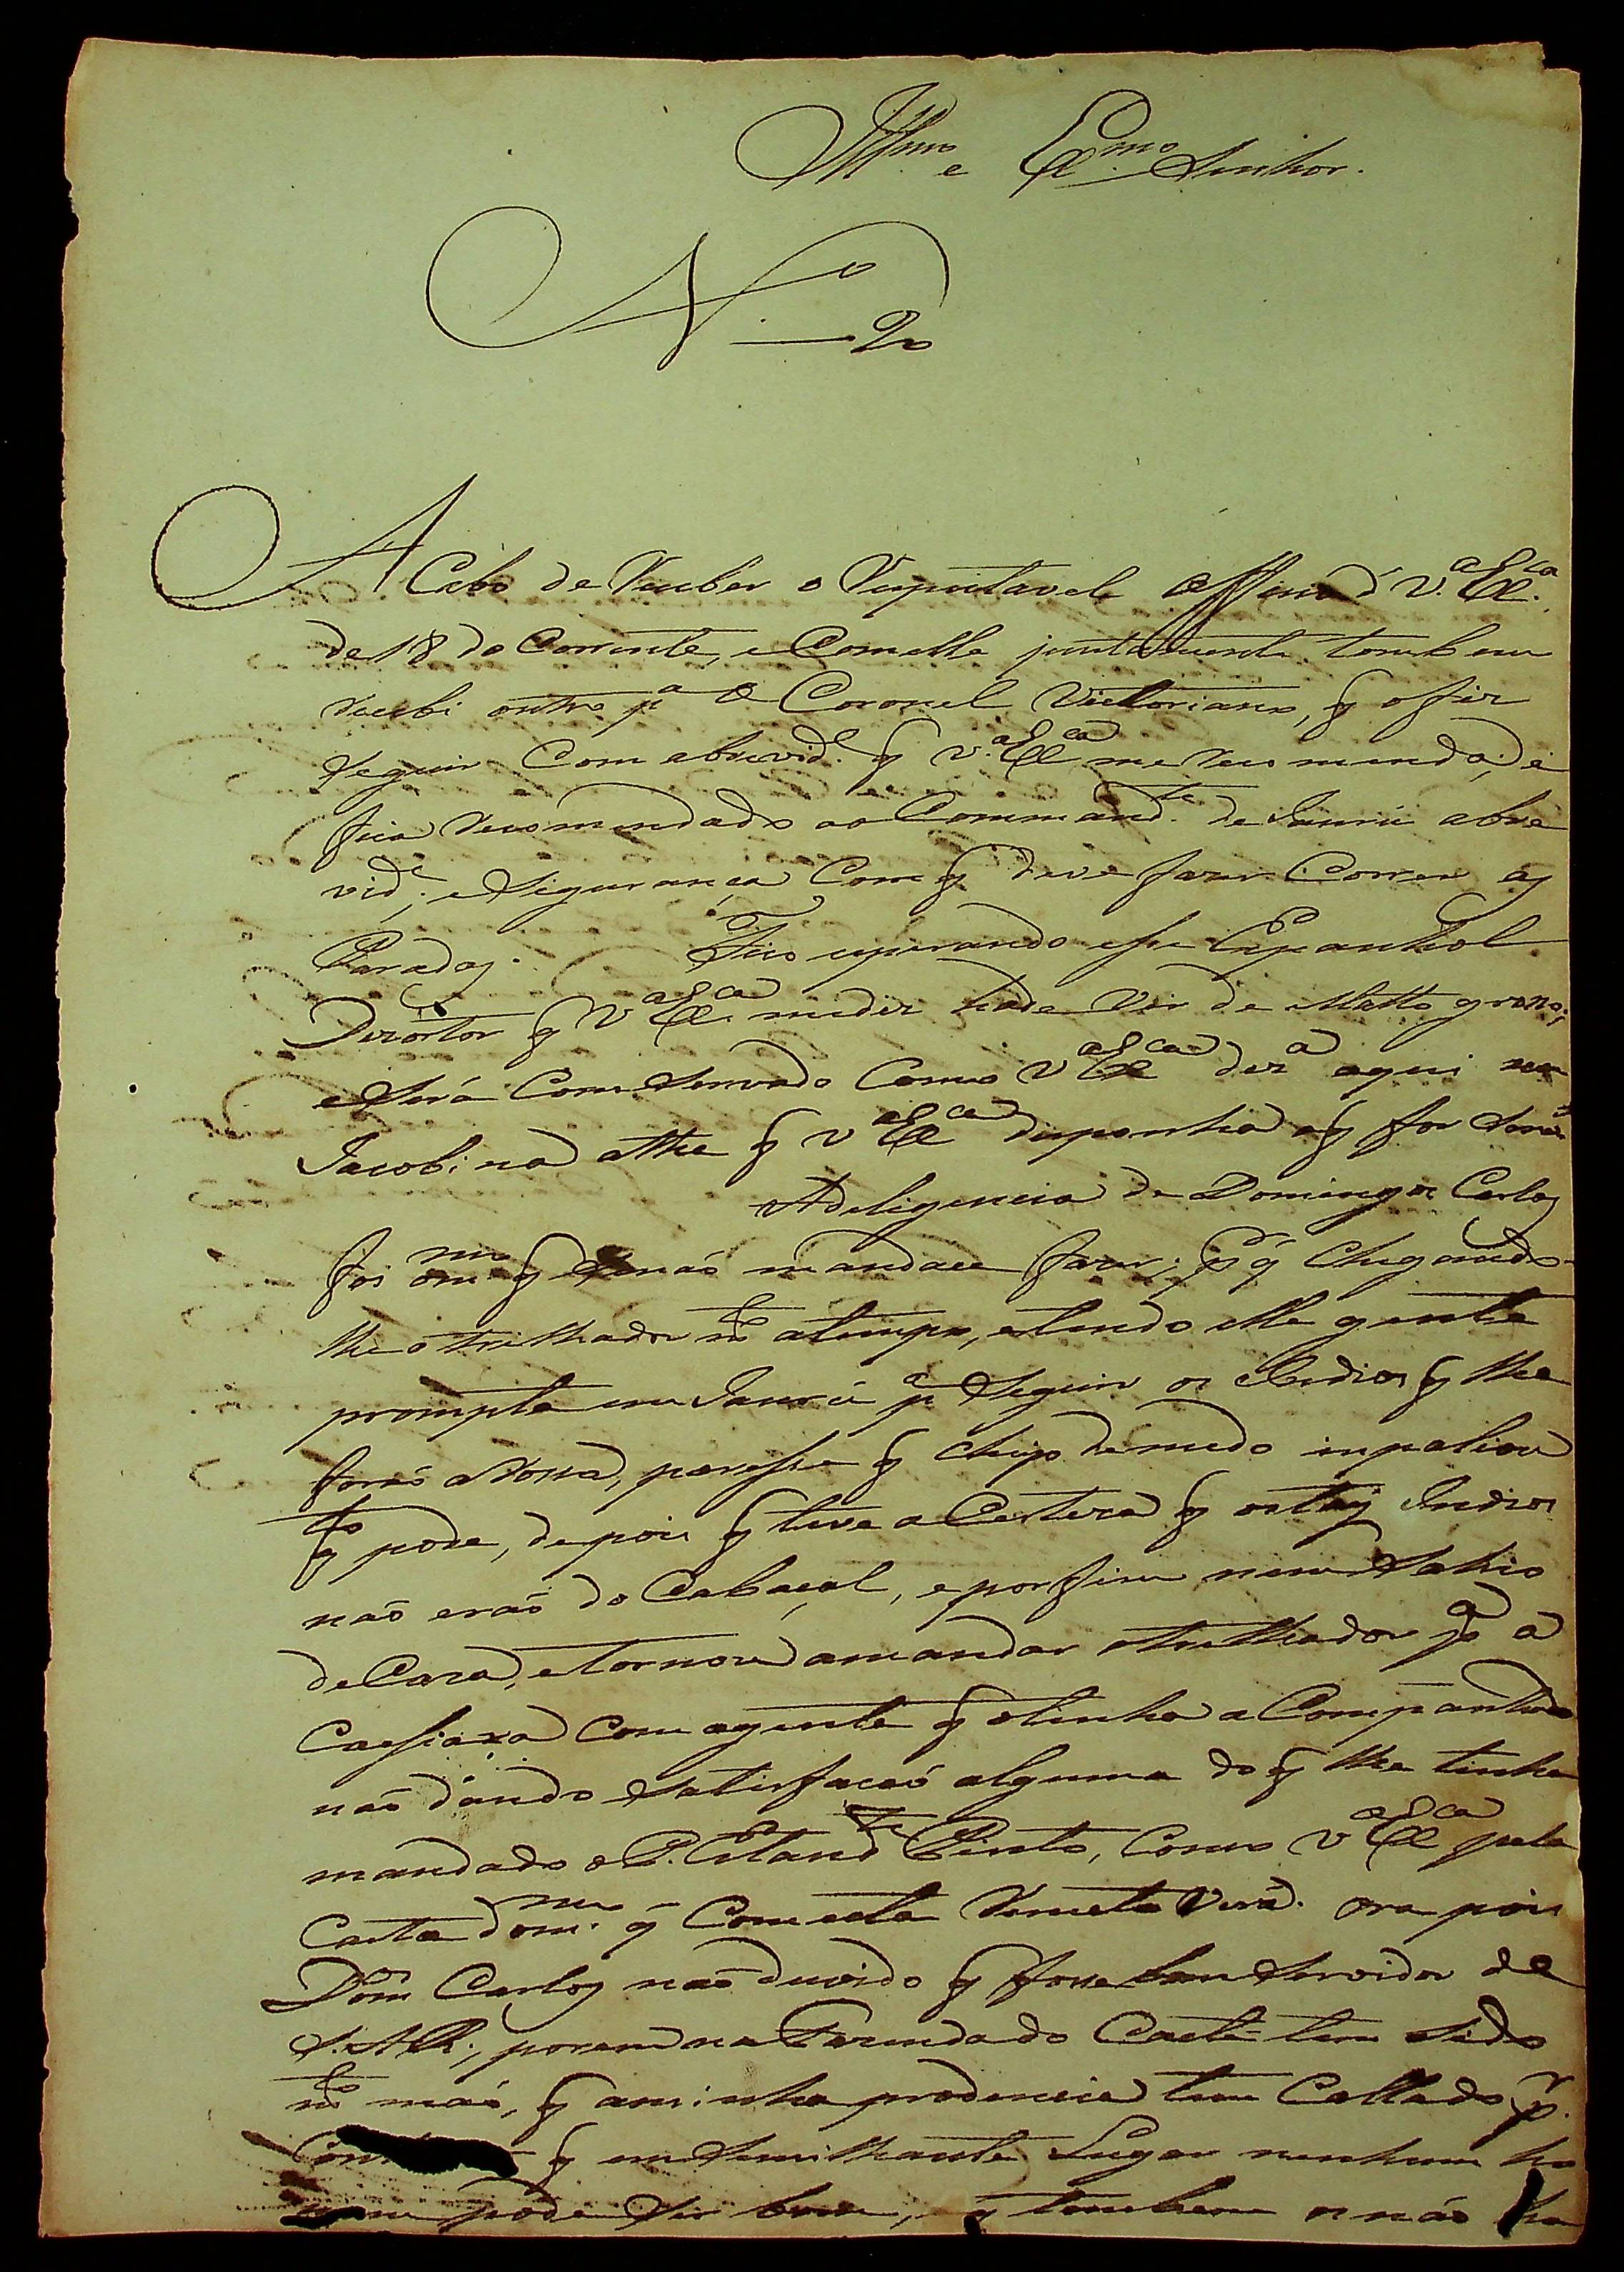 Illmo. e Exmo. Senhor.
N.o 20
ACabo de Receber o Respeitavel officio d' V.a Ex.ca
de 18 do Corrente, e Comelle juntamente tombem
recebi outro p.a o Coronel Victoriano, q o fis
Seguir Com abrevid.e q V.a Ex.ca me recomenda, e
fica recomendado ao Command.te de Jaurú abre
vid.e, e Sigurança Com q deve fazer Correr as
Paradas. Fico esperando esse Espanhol
Dezortor q V.a Ex.ca me dis hade vir de Matto grosso,
e Será Comservado Como V.a Ex.ca dez.a aqui na
Jacobina athe q V.a Ex.ca desponha o q for Servido
Adeligencia de Domingos Carlos
foi omesmo q Senaõ mandace fazer; p.r q chegando-
lhe otrilhador m.to atempo, e tendo elle gente
prompta em Jaurú p.a Seguir os Indios q lhe
foraõ a Rossa, paresse q cheio de medo inpaliou
q.to pode, depois q teve a Certeza q os taes Indios
naõ eraõ do Cabaçal, e por fim nem Sahio
de Caza, e tornou amandar otrilhador p.a a
Caissara Com agente q otinha a Companhado
naõ dando Satisfaçaõ alguma do q lhe tinha
mandado o P. Estand.te Pinto, Como V.a Ex.ca pela
Carta domesmo q Com esta Remeto Verá. Ora pois
Dom.os Carlos naõ duvido q fosse bom Servidor de
S.A.R., porem na Fazenda do Caeté tem Sido
m.to máo, q aminha prudencia tem Callado p.r
q em Semilhante Lugar nenhum ho
mem pode Ser bom, q tombem os náo ha